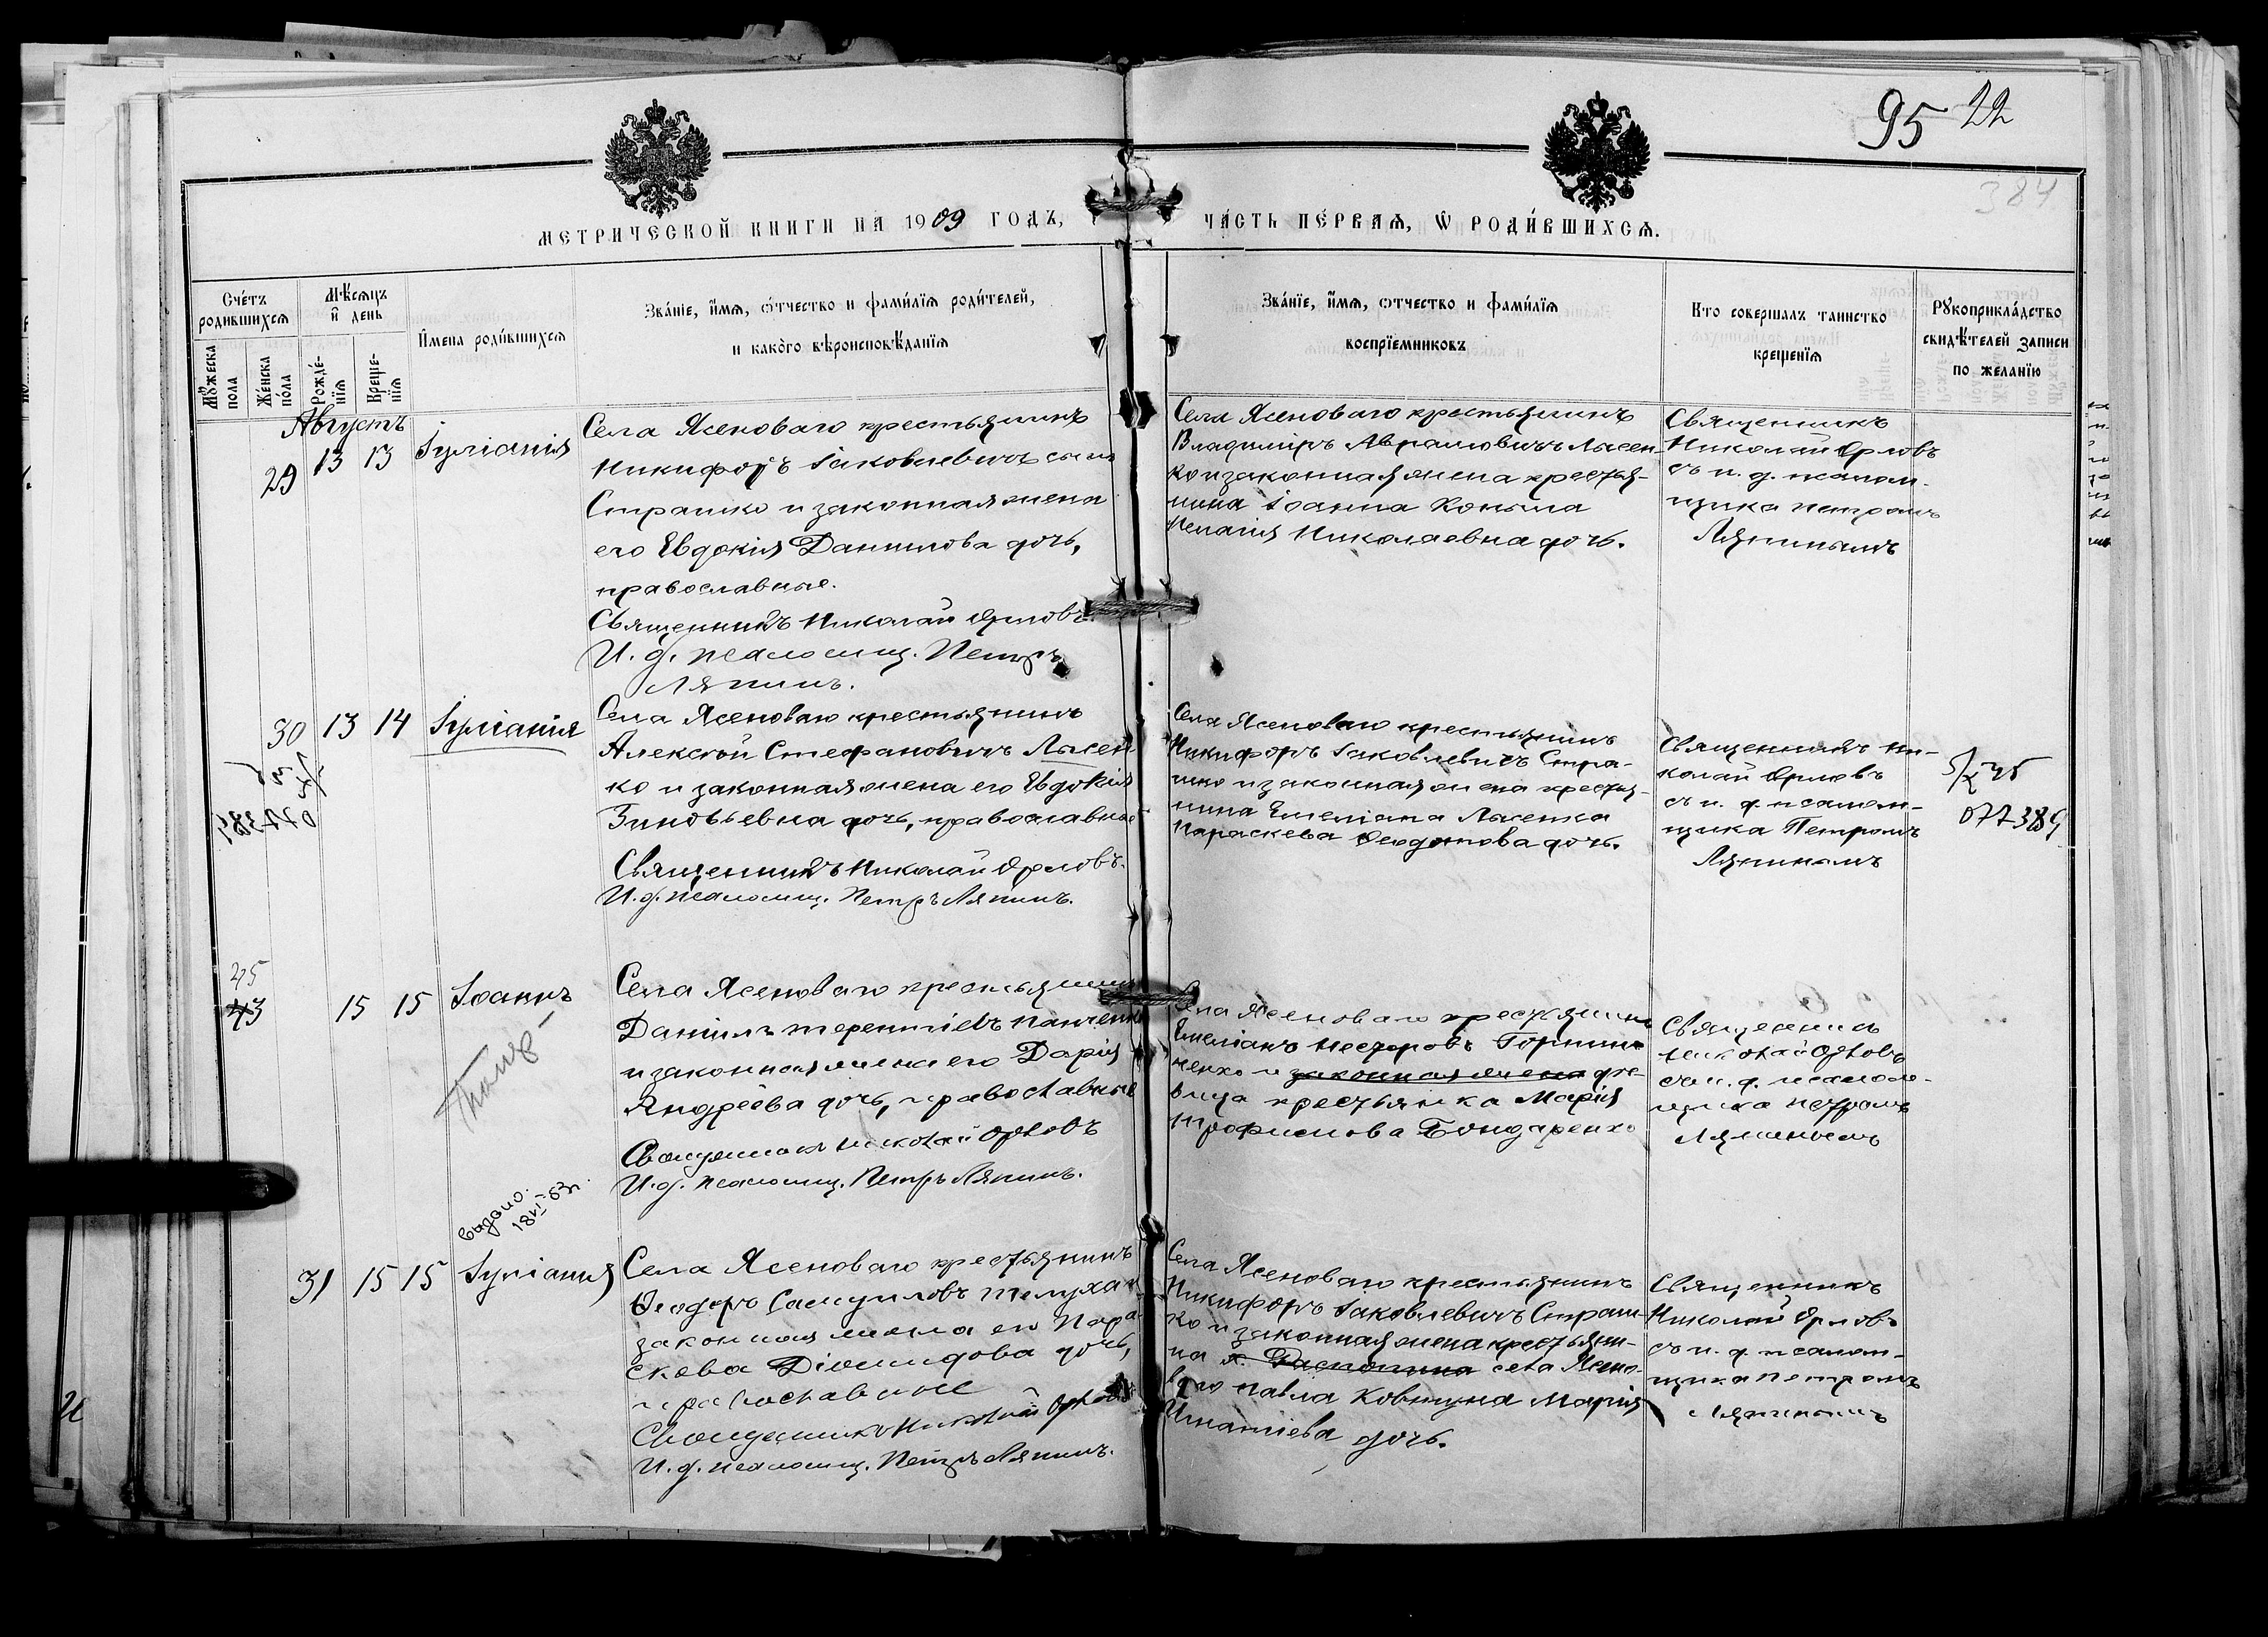 95 22
384
МЕТРИЧЕСКОЙ КНИГИ НА 1909 ГОДЪ,
ЧА́СТЬ ПЕ́РВАѦ, Ѡ РОДИ́ВШИХСѦ.
Сче́тъ родившихсѧ
Мѣ́сѧцъ и день
Имена роди́вшихсѧ
Зва́нїе, и́мѧ, ѻ́тчество и фами́лїѧ роди́телей,
и како́го вѣроисповѣ́данїѧ
Мꙋ́жеска пола
Же́нска по́ла
Рожде́нїѧ
Креще́нїѧ
Зва́нїе, и́мѧ, ѻтчество и фами́лїѧ
воспрїемниковъ
Кто совершалъ таинство
крещенїѧ
Рꙋкоприкла́дство
свидѣ́телей записи
по желанїю
Августъ
29 13 13 Іуліанія
Села Ясеноваго крестьянинъ
Никифоръ Іаковлевичъ сынъ
Страшко и законная жена
его Евдокія Данилова дочь,
православные.
Священникъ Николай Орловъ.
И. д. псаломщ. Петръ
Ляпинъ.
Села Ясеноваго крестьянинъ
Владиміръ Аврамовичъ Лысен-
ко и законная жена крестья-
нина Іоанна Коныма
Пелагія Николаевна дочь.
Священникъ
Николай Орловъ
съ и. д. псалом-
щика Петромъ
Ляпинымъ
30 13 14 Іуліанія
Села Ясеноваго крестьянинъ
Алексій Стефановичъ Лысен-
ко и законная жена его Евдокія
Зиновьевна дочь, православные
Священникъ Николай Орловъ.
И. д. псаломщ. Петръ Ляпинъ.
Села Ясеноваго крестьянинъ
Никифоръ Іаковлевичъ Стра-
шко и законная жена крестья-
нина Емеліана Лысенка
Параскева Ѳеодотова дочь.
Священникъ Ни-
колай Орловъ
съ и. д. псалом-
щика Петромъ
Ляпинымъ
077389
45
43 15 15 Іоаннъ
Села Ясеноваго крестьянинъ
Даніилъ Терентіевъ Панченко
и законная жена его Дарія
Андреева дочь, православные
Священникъ Николай Орловъ
И. д. псаломщ. Петръ Ляпинъ.
Села Ясеноваго крестьянинъ
Емеліанъ Несторовъ
ченко и законная жена дѣ-
вица крестьянка Марія
Трофимова Бондаренко
Священникъ
Николай Орловъ
съ и. д. псалом-
щика Петромъ
Ляпинымъ
Выдано.
18 VI-53г.
31 15 15 Іуліанія
Села Ясеноваго крестьянинъ
Ѳеодоръ Самуиловъ Телуха и
законная жена его Пара-
скева Діомидова дочь,
православные
Священникъ Николай Орловъ
И. д. псаломщ. Петръ Ляпинъ.
Села Ясеноваго крестьянинъ
Никифоръ Іаковлевичъ Страш-
ко и законная жена крестьяни-
на села Ясено-
ваго Павла Ковтуна Марія
Игнатіева дочь.
Священникъ
Николай Орловъ
съ и. д. псалом-
щика Петромъ
Ляпинымъ